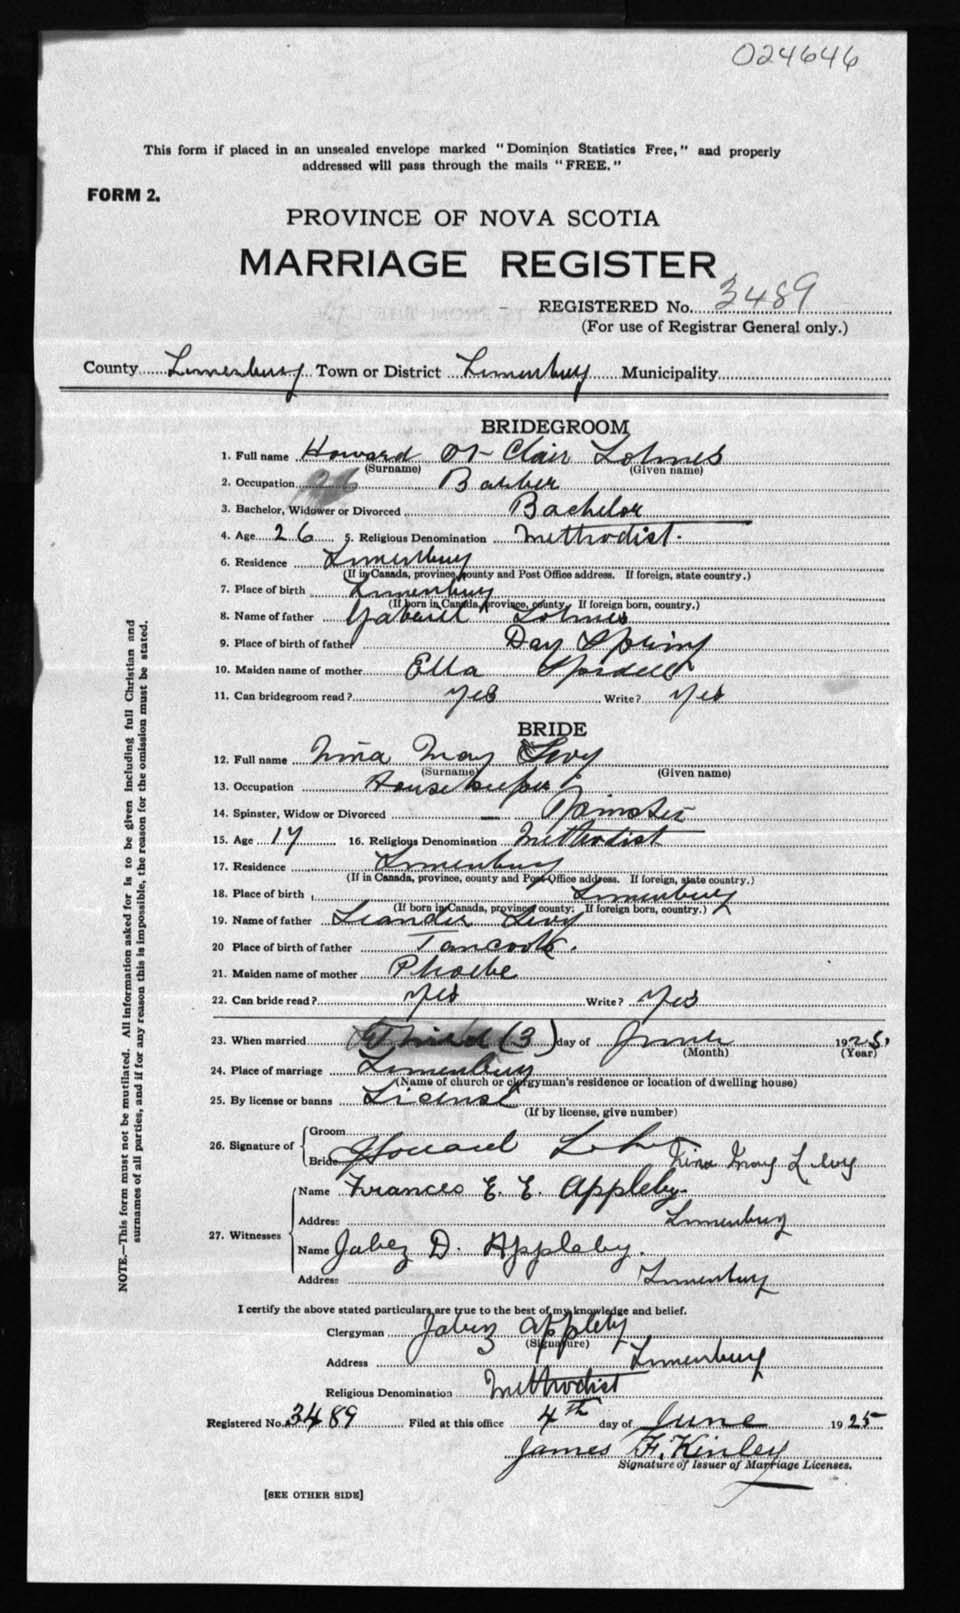 024646
This form if placed in an unsealed envelope marked "Dominion Statistics Free," and properly
addressed will pass through the mails "FREE."
FORM 2.
PROVINCE OF NOVA SCOTIA
MARRIAGE REGISTER
REGISTERED No. 3489
(For use of Registrar General only.)
County Lunenburg Town or District Lunenburg Municipality
BRIDEGROOM
1. Full name Howard St Clair Lohnes
(Surname) (Given name)
2. Occupation Barber
3. Bachelor, Widower or Divorced Bachelor
4. Age 26 5. Religious Denomination Methodist.
6. Residence Lunenburg
(If in Canada, province, county and Post Office address. If foreign, state country.)
7. Place of birth Lunenburg
(If born in Canada, province, county. If foreign born, country.)
8. Name of father Lohnes
9. Place of birth of father Day Spring
10. Maiden name of mother Ella
11. Can bridegroom read? yes Write? yes
BRIDE
12. Full name Nina May Levy
(Surname) (Given name)
13. Occupation Housekeeper
14. Spinster, Widow or Divorced Spinster
15. Age 17 16. Religious Denomination Methodist
17. Residence Lunenburg
(If in Canada, province, county and Post Office address. If foreign, state country.)
18. Place of birth Lunenburg
(If born in Canada, province, county. If foreign born, country.)
19. Name of father Leander Levy
20 Place of birth of father Tancook.
21. Maiden name of mother Phoebe
22. Can bride read? yes Write? Yes
23. When married Third (3) day of June 1925.
(Month) (Year)
24. Place of marriage Lunenburg
(Name of church or clergyman's residence or location of dwelling house)
25. By license or banns License
(If by license, give number)
26. Signature of Groom
Bride Howard Nina May Levy
27. Witnesses
Name Frances E. E. Appleby.
Address Lunenburg
Name Jabez D. Appleby.
Address Lunenburg
I certify the above stated particulars are true to the best of my knowledge and belief.
Clergyman Jabez Appleby
(Signature)
Address Lunenburg
Religious Denomination Methodist
Registered No. 3489 Filed at this office 4th day of June 1925
James F. Kinley
Signature of Issuer of Marriage Licenses.
[SEE OTHER SIDE]
NOTE.—This form must not be mutilated. All information asked for is to be given including full Christian and
surnames of all parties, and if for any reason this is impossible, the reason for the omission must be stated.